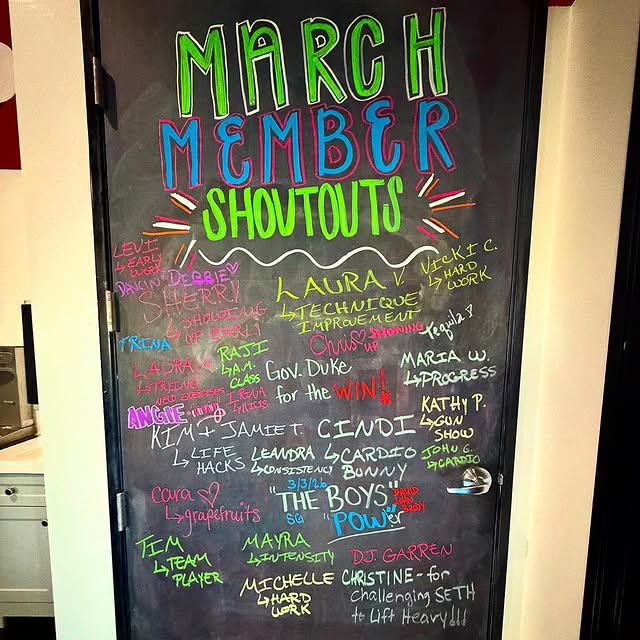 MARCH
MEMBER
SHOUTOUTS
LEVI
↳ EARLY
WORK
DANCIN' DEBBIE ♡
SHERRI
↳ SHOWING
UP EARLY
LAURA V.
↳ TECHNIQUE
IMPROVEMENT
VICKI C.
↳ HARD
WORK
TRINA
RAJI
↳ A.M.
CLASS
Chris ♡ SHOWING
UP
Tequila!
LAURA
↳ TRYING
NEW EXERCISES
TRINA
↳ KICKS
Gov. Duke
for the WIN!
MARIA W.
↳ PROGRESS
ANGIE
KATHY P.
↳ GUN
SHOW
KIM + JAMIE T.
↳ LIFE
HACKS
LEANDRA
↳ CONSISTENCY
CINDI
↳ CARDIO
BUNNY
JOHN G.
↳ CARDIO
Cara ♡
↳ grapefruits
3/3/26
"THE BOYS"
DAVID
JOHN
BRODY
SG "POWer
TIM
↳ TEAM
PLAYER
MAYRA
↳ INTENSITY
MICHELLE
↳ HARD
WORK
D.J. GARREN
CHRISTINE - for
challenging SETH
to Lift Heavy!!!